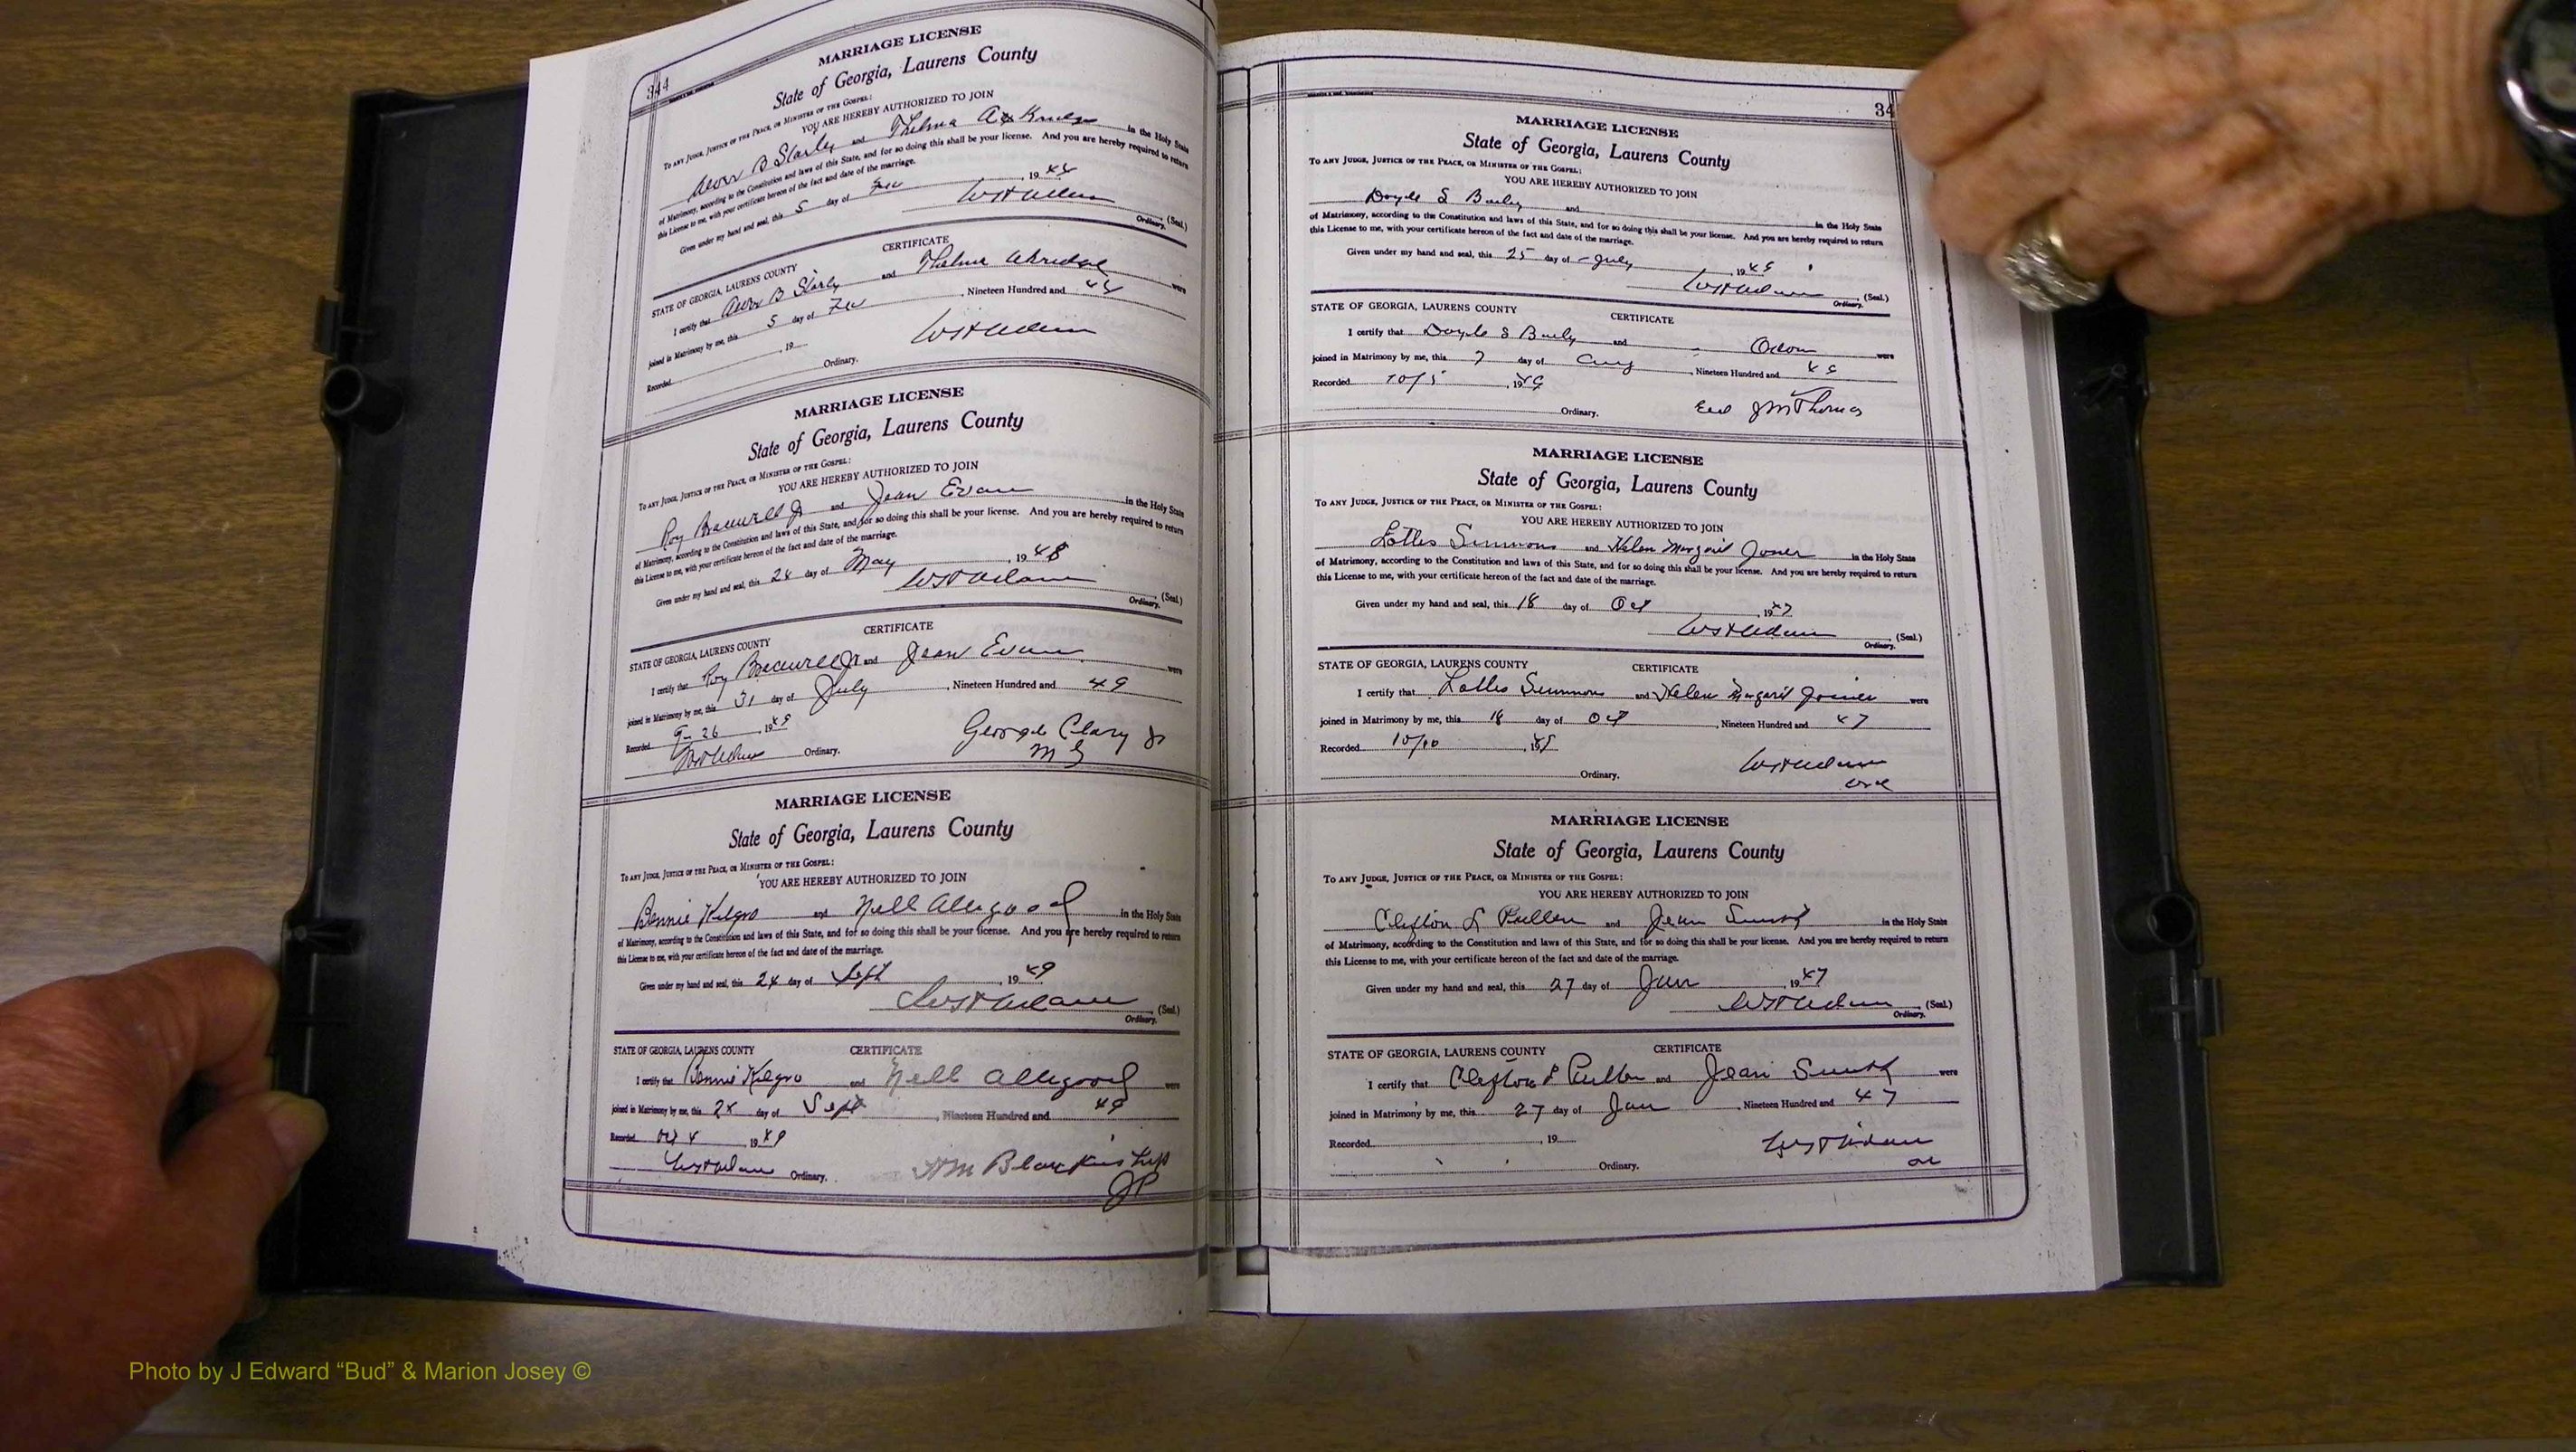 344
MARRIAGE LICENSE
State of Georgia, Laurens County
TO ANY JUDGE, JUSTICE OF THE PEACE, OR MINISTER OF THE GOSPEL:
YOU ARE HEREBY AUTHORIZED TO JOIN
B and Thelma in the Holy State
of Matrimony, according to the Constitution and laws of this State, and for so doing this shall be your license. And you are hereby required to return
this License to me, with your certificate hereon of the fact and date of the marriage.
Given under my hand and seal, this 5 day of 19 44
(Seal.)
Ordinary.
CERTIFICATE
STATE OF GEORGIA, LAURENS COUNTY
I certify that B and Thelma were
joined in Matrimony by me, this 5 day of , Nineteen Hundred and 44
Recorded , 19
Ordinary.
MARRIAGE LICENSE
State of Georgia, Laurens County
TO ANY JUDGE, JUSTICE OF THE PEACE, OR MINISTER OF THE GOSPEL:
YOU ARE HEREBY AUTHORIZED TO JOIN
Roy Bracewell Jr and Jean Evans in the Holy State
of Matrimony, according to the Constitution and laws of this State, and for so doing this shall be your license. And you are hereby required to return
this License to me, with your certificate hereon of the fact and date of the marriage.
Given under my hand and seal, this 24 day of May , 19 48
(Seal.)
Ordinary.
CERTIFICATE
STATE OF GEORGIA, LAURENS COUNTY
I certify that Roy Bracewell Jr and Jean Evans were
joined in Matrimony by me, this 31 day of July , Nineteen Hundred and 49
Recorded 9-26 , 1949
Ordinary.
George Clary Jr
M G
MARRIAGE LICENSE
State of Georgia, Laurens County
TO ANY JUDGE, JUSTICE OF THE PEACE, OR MINISTER OF THE GOSPEL:
YOU ARE HEREBY AUTHORIZED TO JOIN
Bennie Kilgro and Nell Allegood in the Holy State
of Matrimony, according to the Constitution and laws of this State, and for so doing this shall be your license. And you are hereby required to return
this License to me, with your certificate hereon of the fact and date of the marriage.
Given under my hand and seal, this 24 day of Sept , 19 49
(Seal.)
Ordinary.
STATE OF GEORGIA, LAURENS COUNTY CERTIFICATE
I certify that Bennie Kilgro and Nell Allegood were
joined in Matrimony by me, this 24 day of Sept , Nineteen Hundred and 49
Recorded Oct 4 , 19 49
Ordinary. Blankinship
JP
34
MARRIAGE LICENSE
State of Georgia, Laurens County
TO ANY JUDGE, JUSTICE OF THE PEACE, OR MINISTER OF THE GOSPEL:
YOU ARE HEREBY AUTHORIZED TO JOIN
Doyle S and in the Holy State
of Matrimony, according to the Constitution and laws of this State, and for so doing this shall be your license. And you are hereby required to return
this License to me, with your certificate hereon of the fact and date of the marriage.
Given under my hand and seal, this 25 day of July , 19
(Seal.)
Ordinary.
STATE OF GEORGIA, LAURENS COUNTY
CERTIFICATE
I certify that Doyle S and Odom were
joined in Matrimony by me, this 7 day of Aug , Nineteen Hundred and
Recorded 10/5 , 19
Ordinary. J M Thomas
MARRIAGE LICENSE
State of Georgia, Laurens County
TO ANY JUDGE, JUSTICE OF THE PEACE, OR MINISTER OF THE GOSPEL:
YOU ARE HEREBY AUTHORIZED TO JOIN
Simmons and Helen Margaret Joiner in the Holy State
of Matrimony, according to the Constitution and laws of this State, and for so doing this shall be your license. And you are hereby required to return
this License to me, with your certificate hereon of the fact and date of the marriage.
Given under my hand and seal, this 18 day of Oct , 19 47
(Seal.)
Ordinary.
STATE OF GEORGIA, LAURENS COUNTY CERTIFICATE
I certify that Simmons and Helen Margaret Joiner were
joined in Matrimony by me, this 18 day of Oct , Nineteen Hundred and 47
Recorded 10/10 , 19
Ordinary.
MARRIAGE LICENSE
State of Georgia, Laurens County
TO ANY JUDGE, JUSTICE OF THE PEACE, OR MINISTER OF THE GOSPEL:
YOU ARE HEREBY AUTHORIZED TO JOIN
Clifton L Pullen and Jean Smith in the Holy State
of Matrimony, according to the Constitution and laws of this State, and for so doing this shall be your license. And you are hereby required to return
this License to me, with your certificate hereon of the fact and date of the marriage.
Given under my hand and seal, this 27 day of Jan , 19 47
(Seal.)
Ordinary.
STATE OF GEORGIA, LAURENS COUNTY CERTIFICATE
I certify that Clifton L Pullen and Jean Smith were
joined in Matrimony by me, this 27 day of Jan , Nineteen Hundred and 47
Recorded , 19
Ordinary.
Photo by J Edward “Bud” & Marion Josey ©